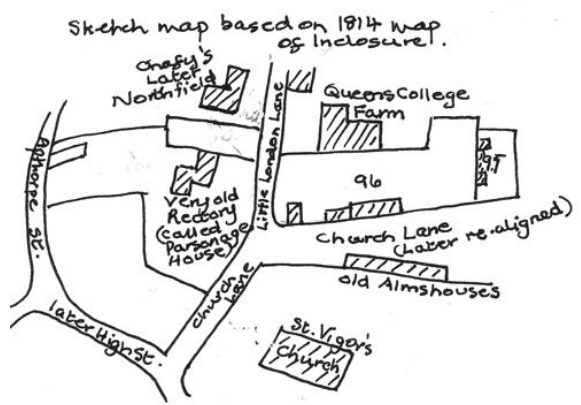 Sketch map based on 1814 map
of Inclosure.
Later
Northfield
Queens College
Farm
Little London Lane
Apthorpe St.
95
96
Very old
Rectory
(called
Parsonage
House)
Church Lane
(Later re-aligned)
Church Lane
old Almshouses
later High St.
St. Vigor's
Church